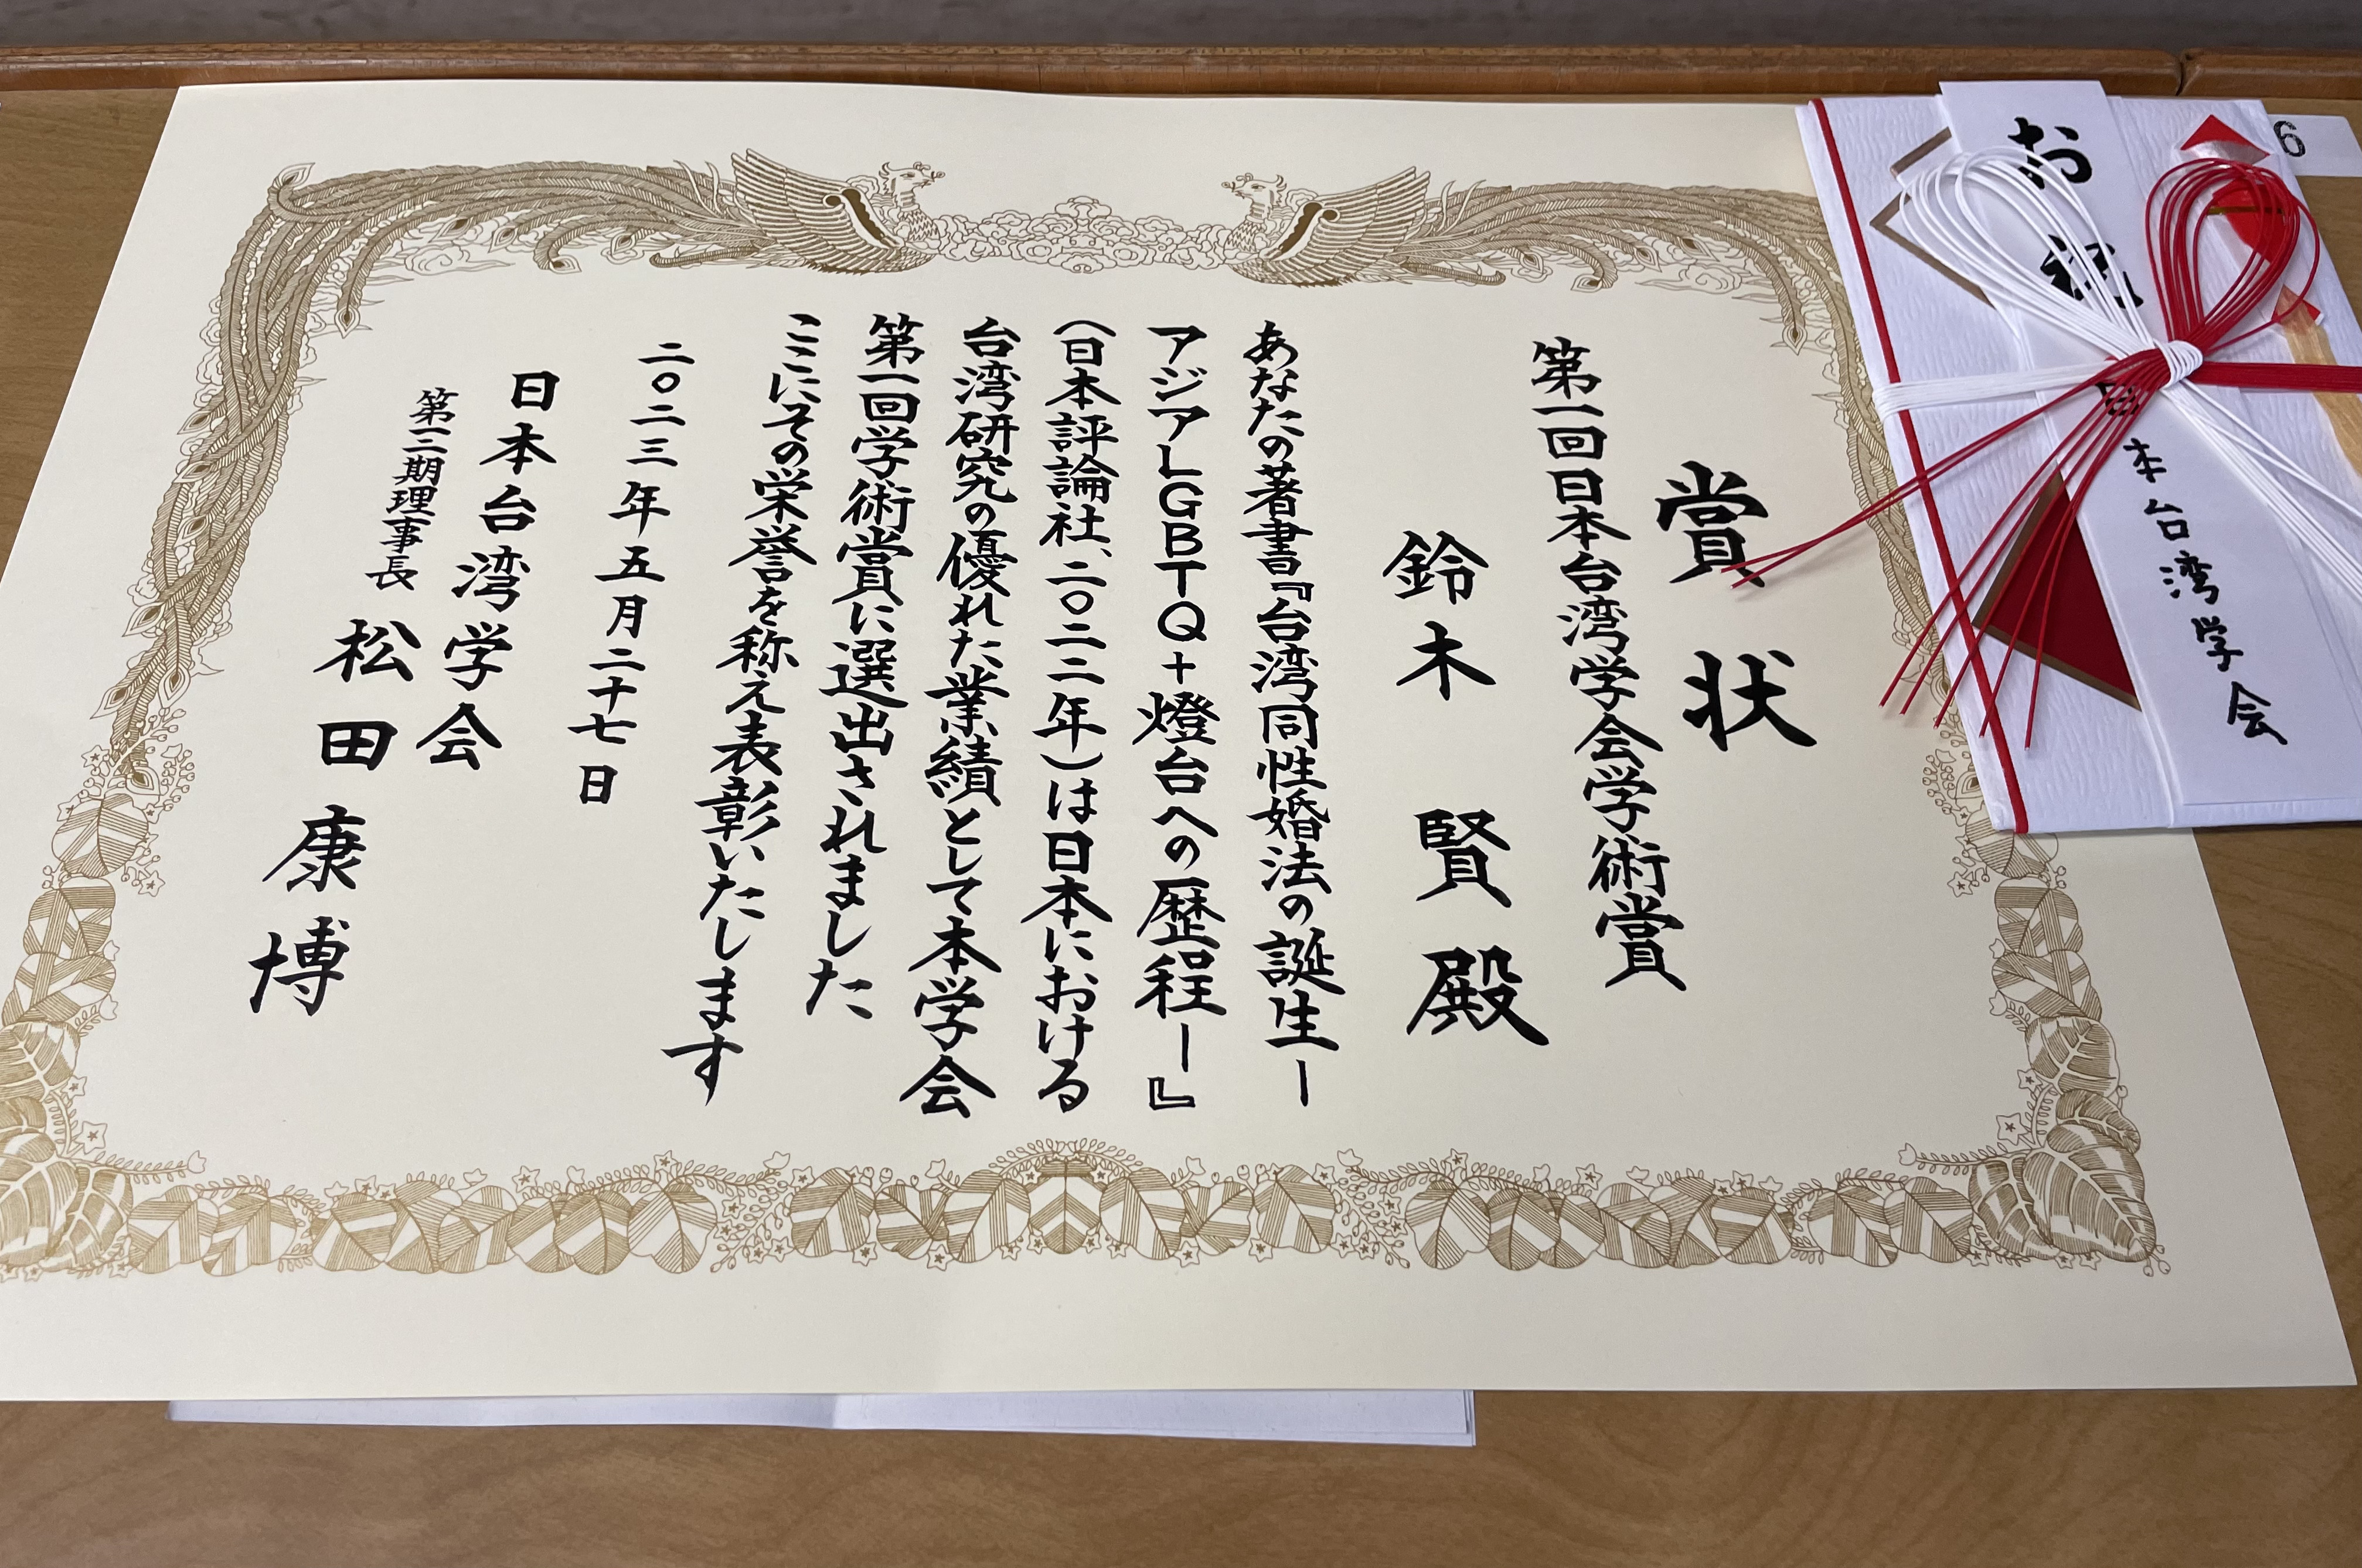 賞状
第一回日本台湾学会学術賞
鈴木賢殿
あなたの著書『台湾同性婚法の誕生ー
アジアLGBTQ+燈台への歴程ー』
(日本評論社、二〇二二年)は日本における
台湾研究の優れた業績として本学会
第一回学術賞に選出されました
ここにその栄誉を称え表彰いたします
二〇二三年五月二十七日
日本台湾学会
第一二期理事長 松田康博
お祝
日本台湾学会
6